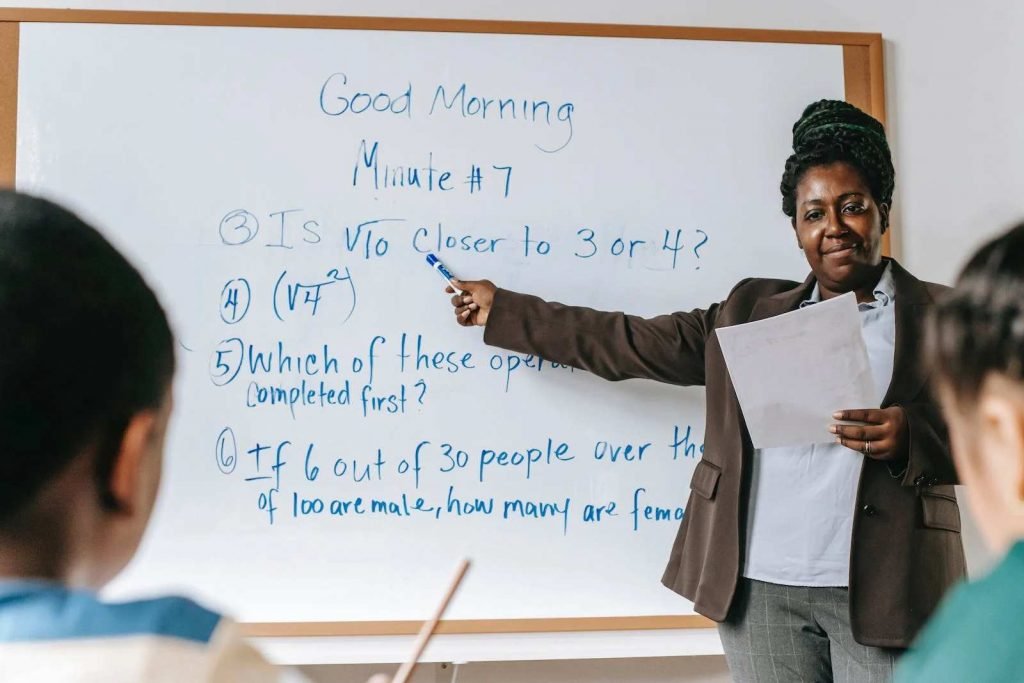 Good Morning
Minute # 7
③ Is √10 closer to 3 or 4?
④ (√4²)
⑤ Which of these
completed first?
⑥ If 6 out of 30 people over the
of 100 are male, how many are